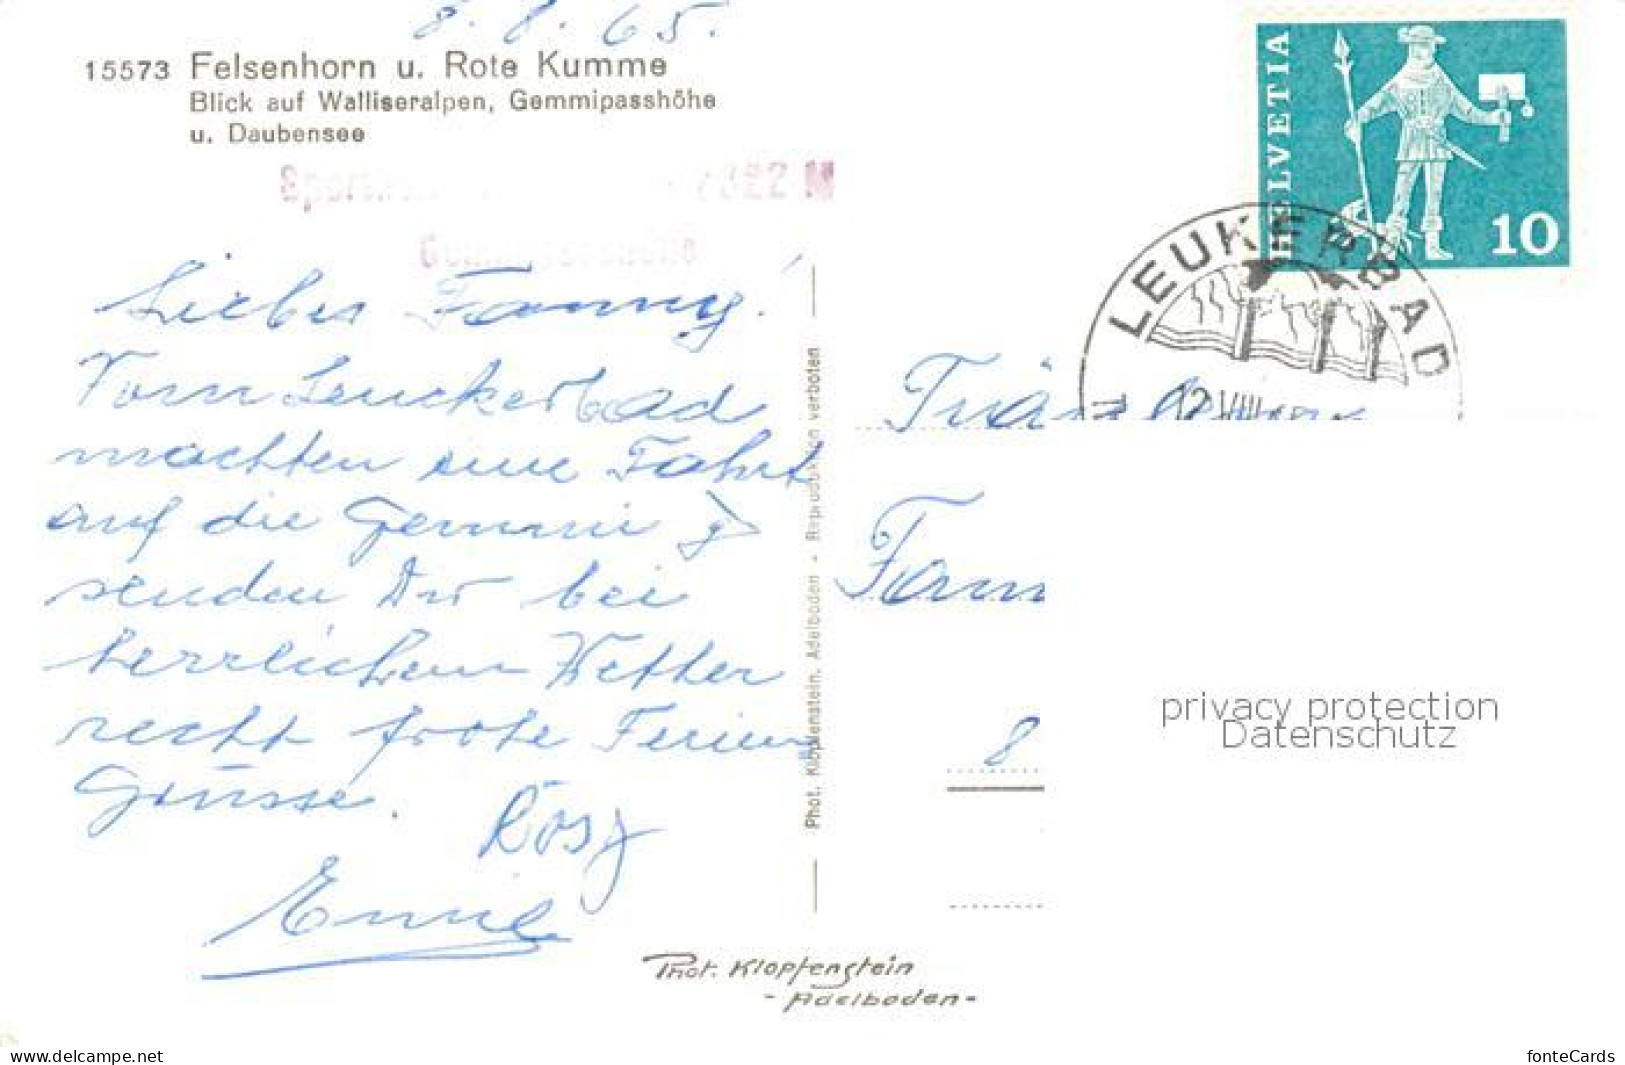 8. 8. 65.
15573 Felsenhorn u. Rote Kumme
Blick auf Walliseralpen, Gemmipasshöhe
u. Daubensee
2322 M
Gemmipasshöhe
HELVETIA
10
LEUKERBAD
12 VIII
Liebes Fanny!
Vom Leuckerbad
machten eine Fahrt
auf die Gemmi &
senden Dir bei
herrlichem Wetter
recht frohe Ferien
Grüsse.
Rösy
Emil
Phot. Klopfenstein, Adelboden - Reproduktion verboten
8
privacy protection
Datenschutz
Phot. Klopfenstein
- Adelboden -
www.delcampe.net
fonteCards